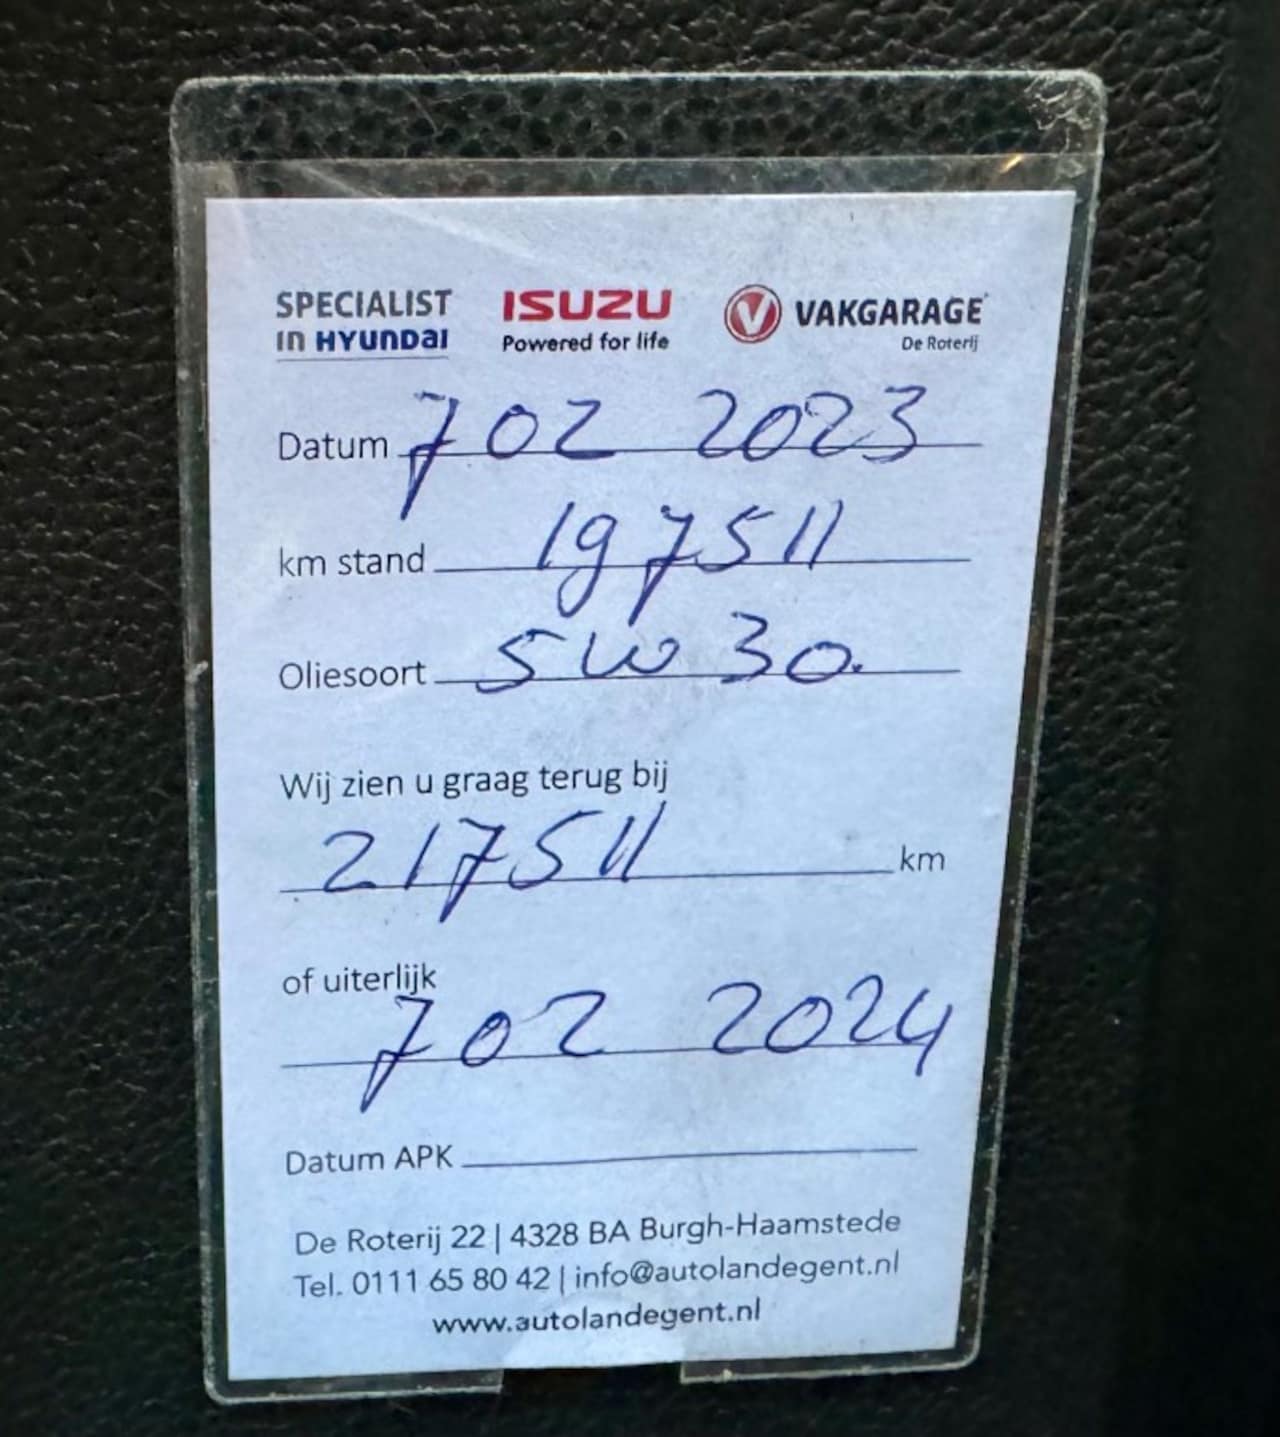 SPECIALIST
in HYUNDAI
ISUZU
Powered for life
VAKGARAGE
De Roterij
Datum 7 02 2023
km stand 197511
Oliesoort 5W 30.
Wij zien u graag terug bij
217511 km
of uiterlijk
7 02 2024
Datum APK
De Roterij 22 | 4328 BA Burgh-Haamstede
Tel. 0111 65 80 42 | info@autolandegent.nl
www.autolandegent.nl